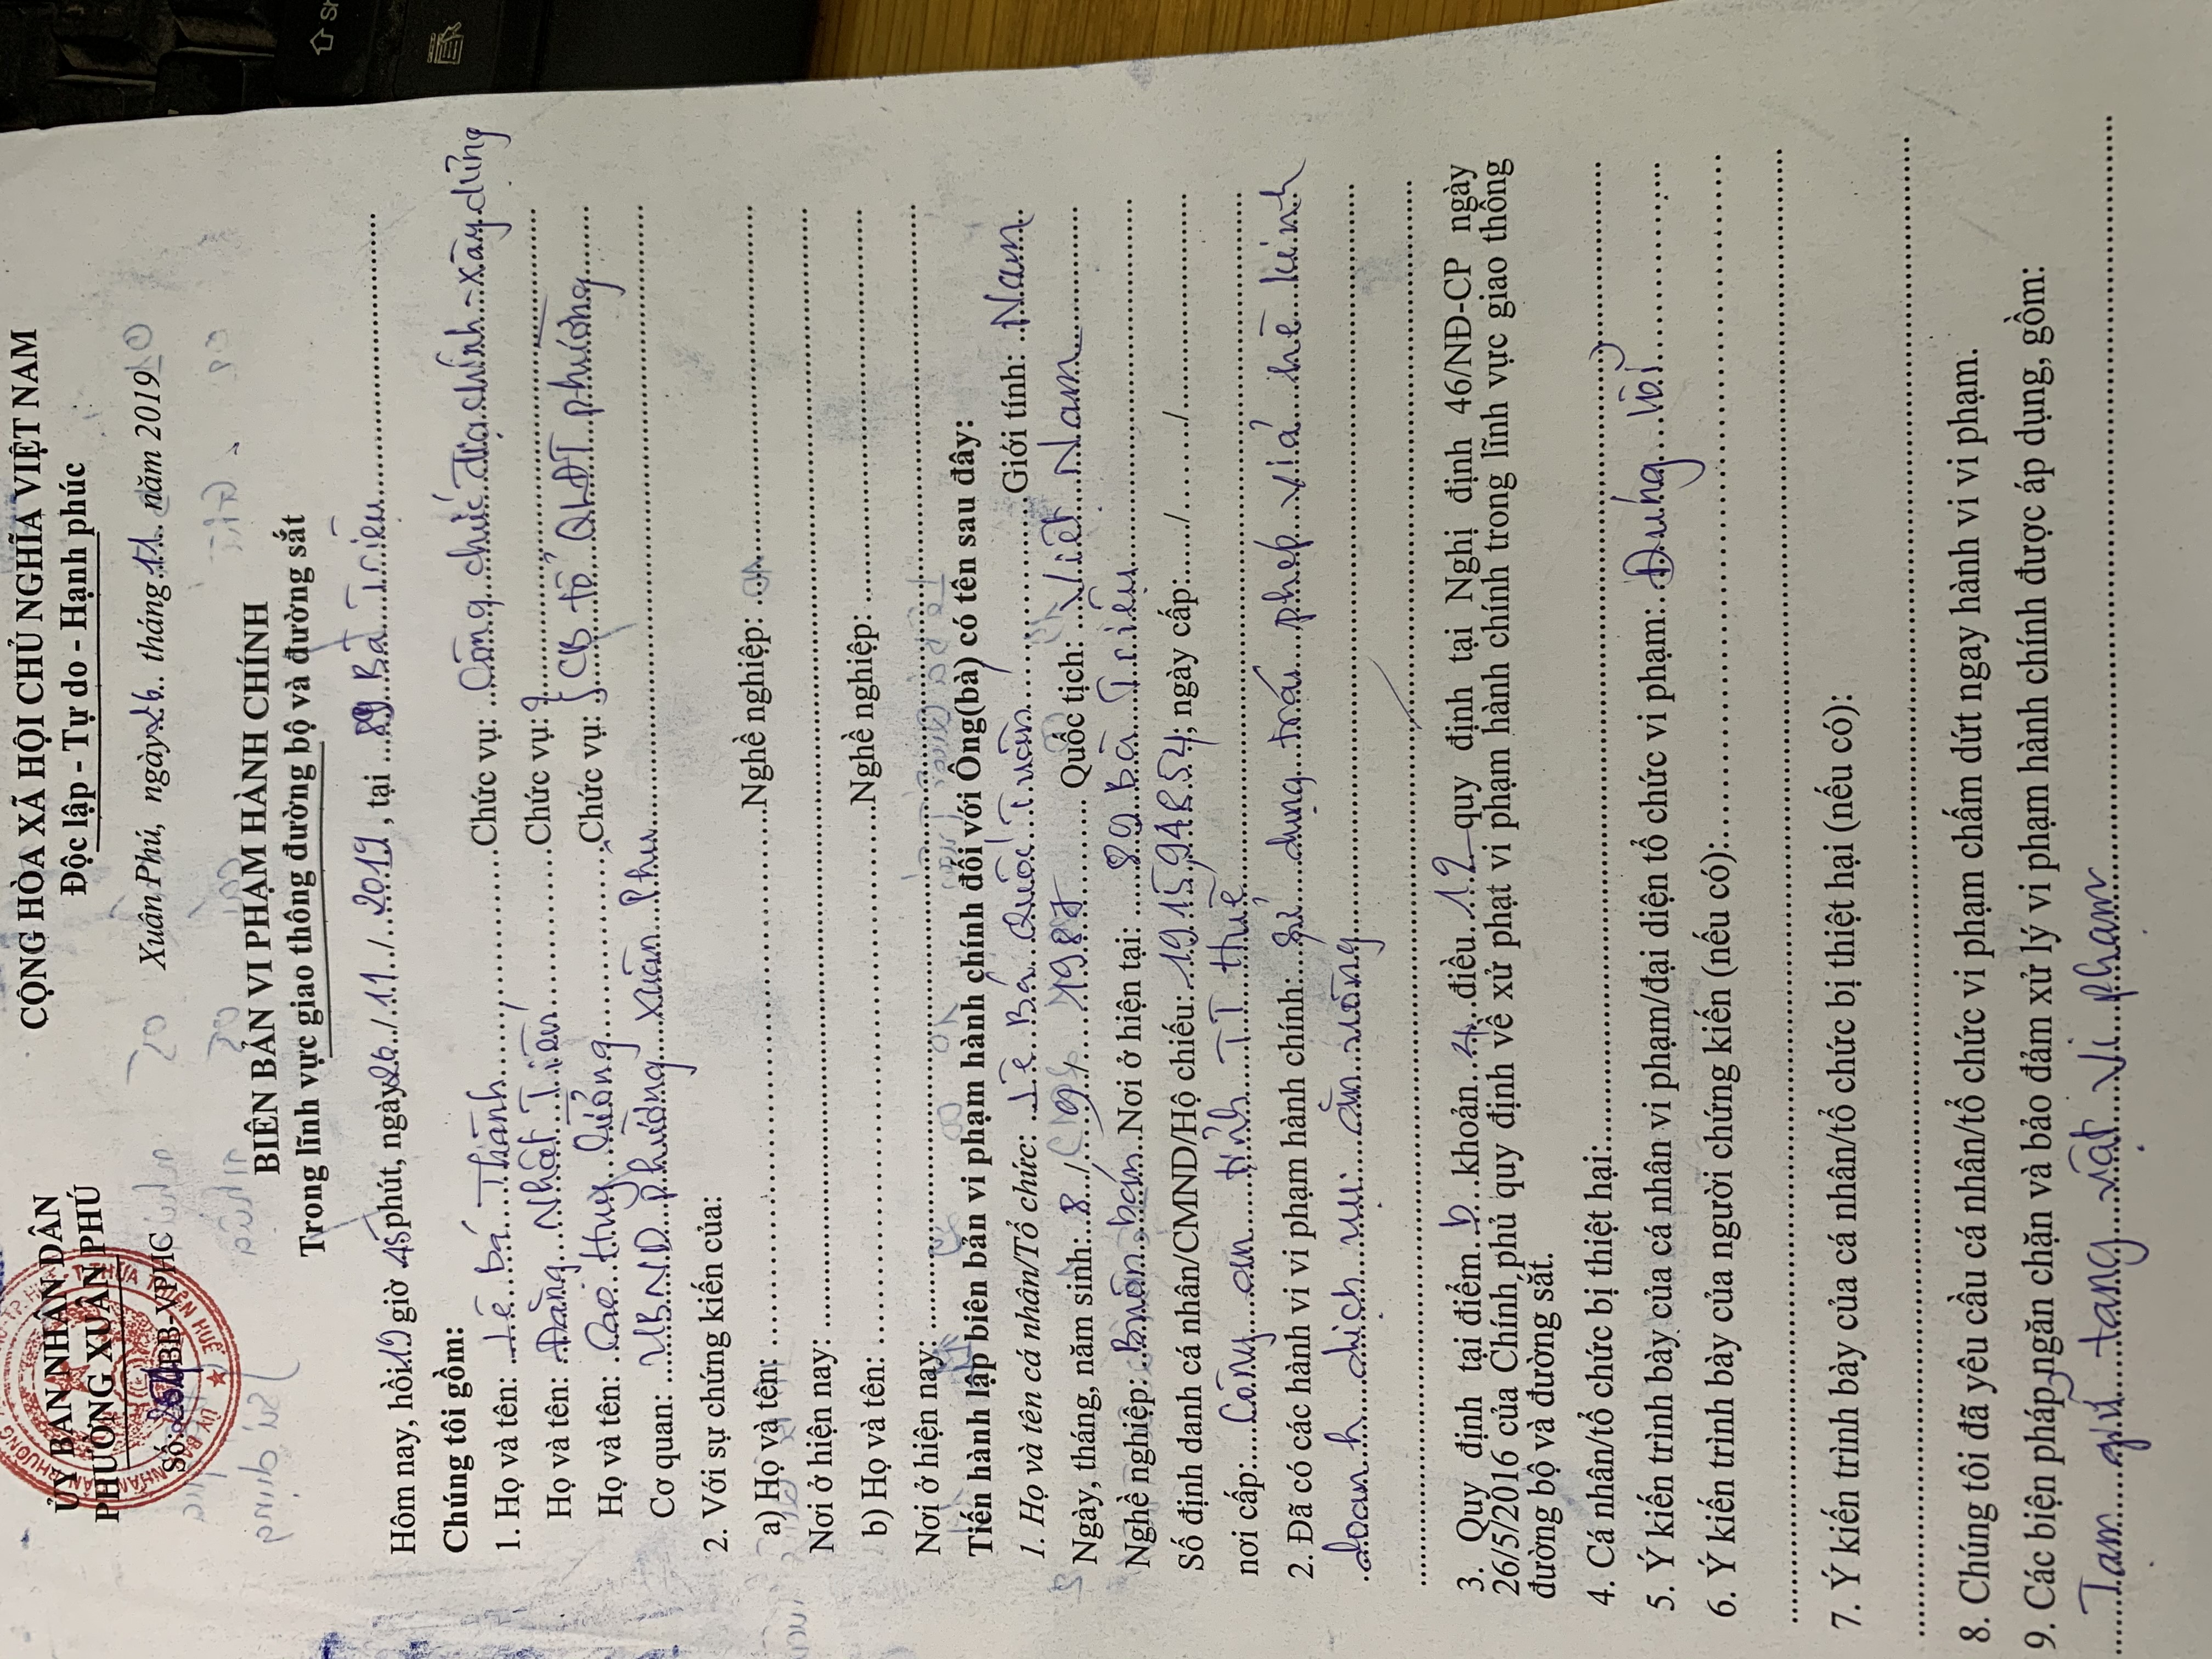 ỦY BAN NHÂN DÂN
PHƯỜNG XUÂN PHÚ
Số: /BB-VPHC
CỘNG HÒA XÃ HỘI CHỦ NGHĨA VIỆT NAM
Độc lập - Tự do - Hạnh phúc
Xuân Phú, ngày 26 tháng 11 năm 2019
BIÊN BẢN VI PHẠM HÀNH CHÍNH
Trong lĩnh vực giao thông đường bộ và đường sắt
Hôm nay, hồi giờ 45 phút, ngày 26 / 11 / 2019, tại 89 Bà Triệu
Chúng tôi gồm:
1. Họ và tên: Lê bá Thành Chức vụ: Công chức địa chính - xây dựng
Họ và tên: Đặng Nhật Tiến Chức vụ:
Họ và tên: Cao Huy Cường Chức vụ: CB tổ QLĐT phường
Cơ quan: UBND phường Xuân Phú
2. Với sự chứng kiến của:
a) Họ và tên: Nghề nghiệp:
Nơi ở hiện nay:
b) Họ và tên: Nghề nghiệp:
Nơi ở hiện nay:
Tiến hành lập biên bản vi phạm hành chính đối với Ông(bà) có tên sau đây:
1. Họ và tên cá nhân/Tổ chức: Lê Bá Quốc Tuấn Giới tính: Nam
Ngày, tháng, năm sinh: 8 / / 1987 Quốc tịch: Việt Nam
Nghề nghiệp: Buôn bán Nơi ở hiện tại: 89 Bà Triệu
Số định danh cá nhân/CMND/Hộ chiếu: ; ngày cấp: / /
nơi cấp: Công an tỉnh TT Huế
2. Đã có các hành vi vi phạm hành chính: Sử dụng trái phép vỉa hè kinh
doanh dịch vụ ăn uống
3. Quy định tại điểm b khoản 4 điều 12 quy định tại Nghị định 46/NĐ-CP ngày
26/5/2016 của Chính phủ quy định về xử phạt vi phạm hành chính trong lĩnh vực giao thông
đường bộ và đường sắt.
4. Cá nhân/tổ chức bị thiệt hại:
5. Ý kiến trình bày của cá nhân vi phạm/đại diện tổ chức vi phạm: Đúng lỗi
6. Ý kiến trình bày của người chứng kiến (nếu có):
7. Ý kiến trình bày của cá nhân/tổ chức bị thiệt hại (nếu có):
8. Chúng tôi đã yêu cầu cá nhân/tổ chức vi phạm chấm dứt ngay hành vi vi phạm.
9. Các biện pháp ngăn chặn và bảo đảm xử lý vi phạm hành chính được áp dụng, gồm:
Tạm giữ tang vật vi phạm